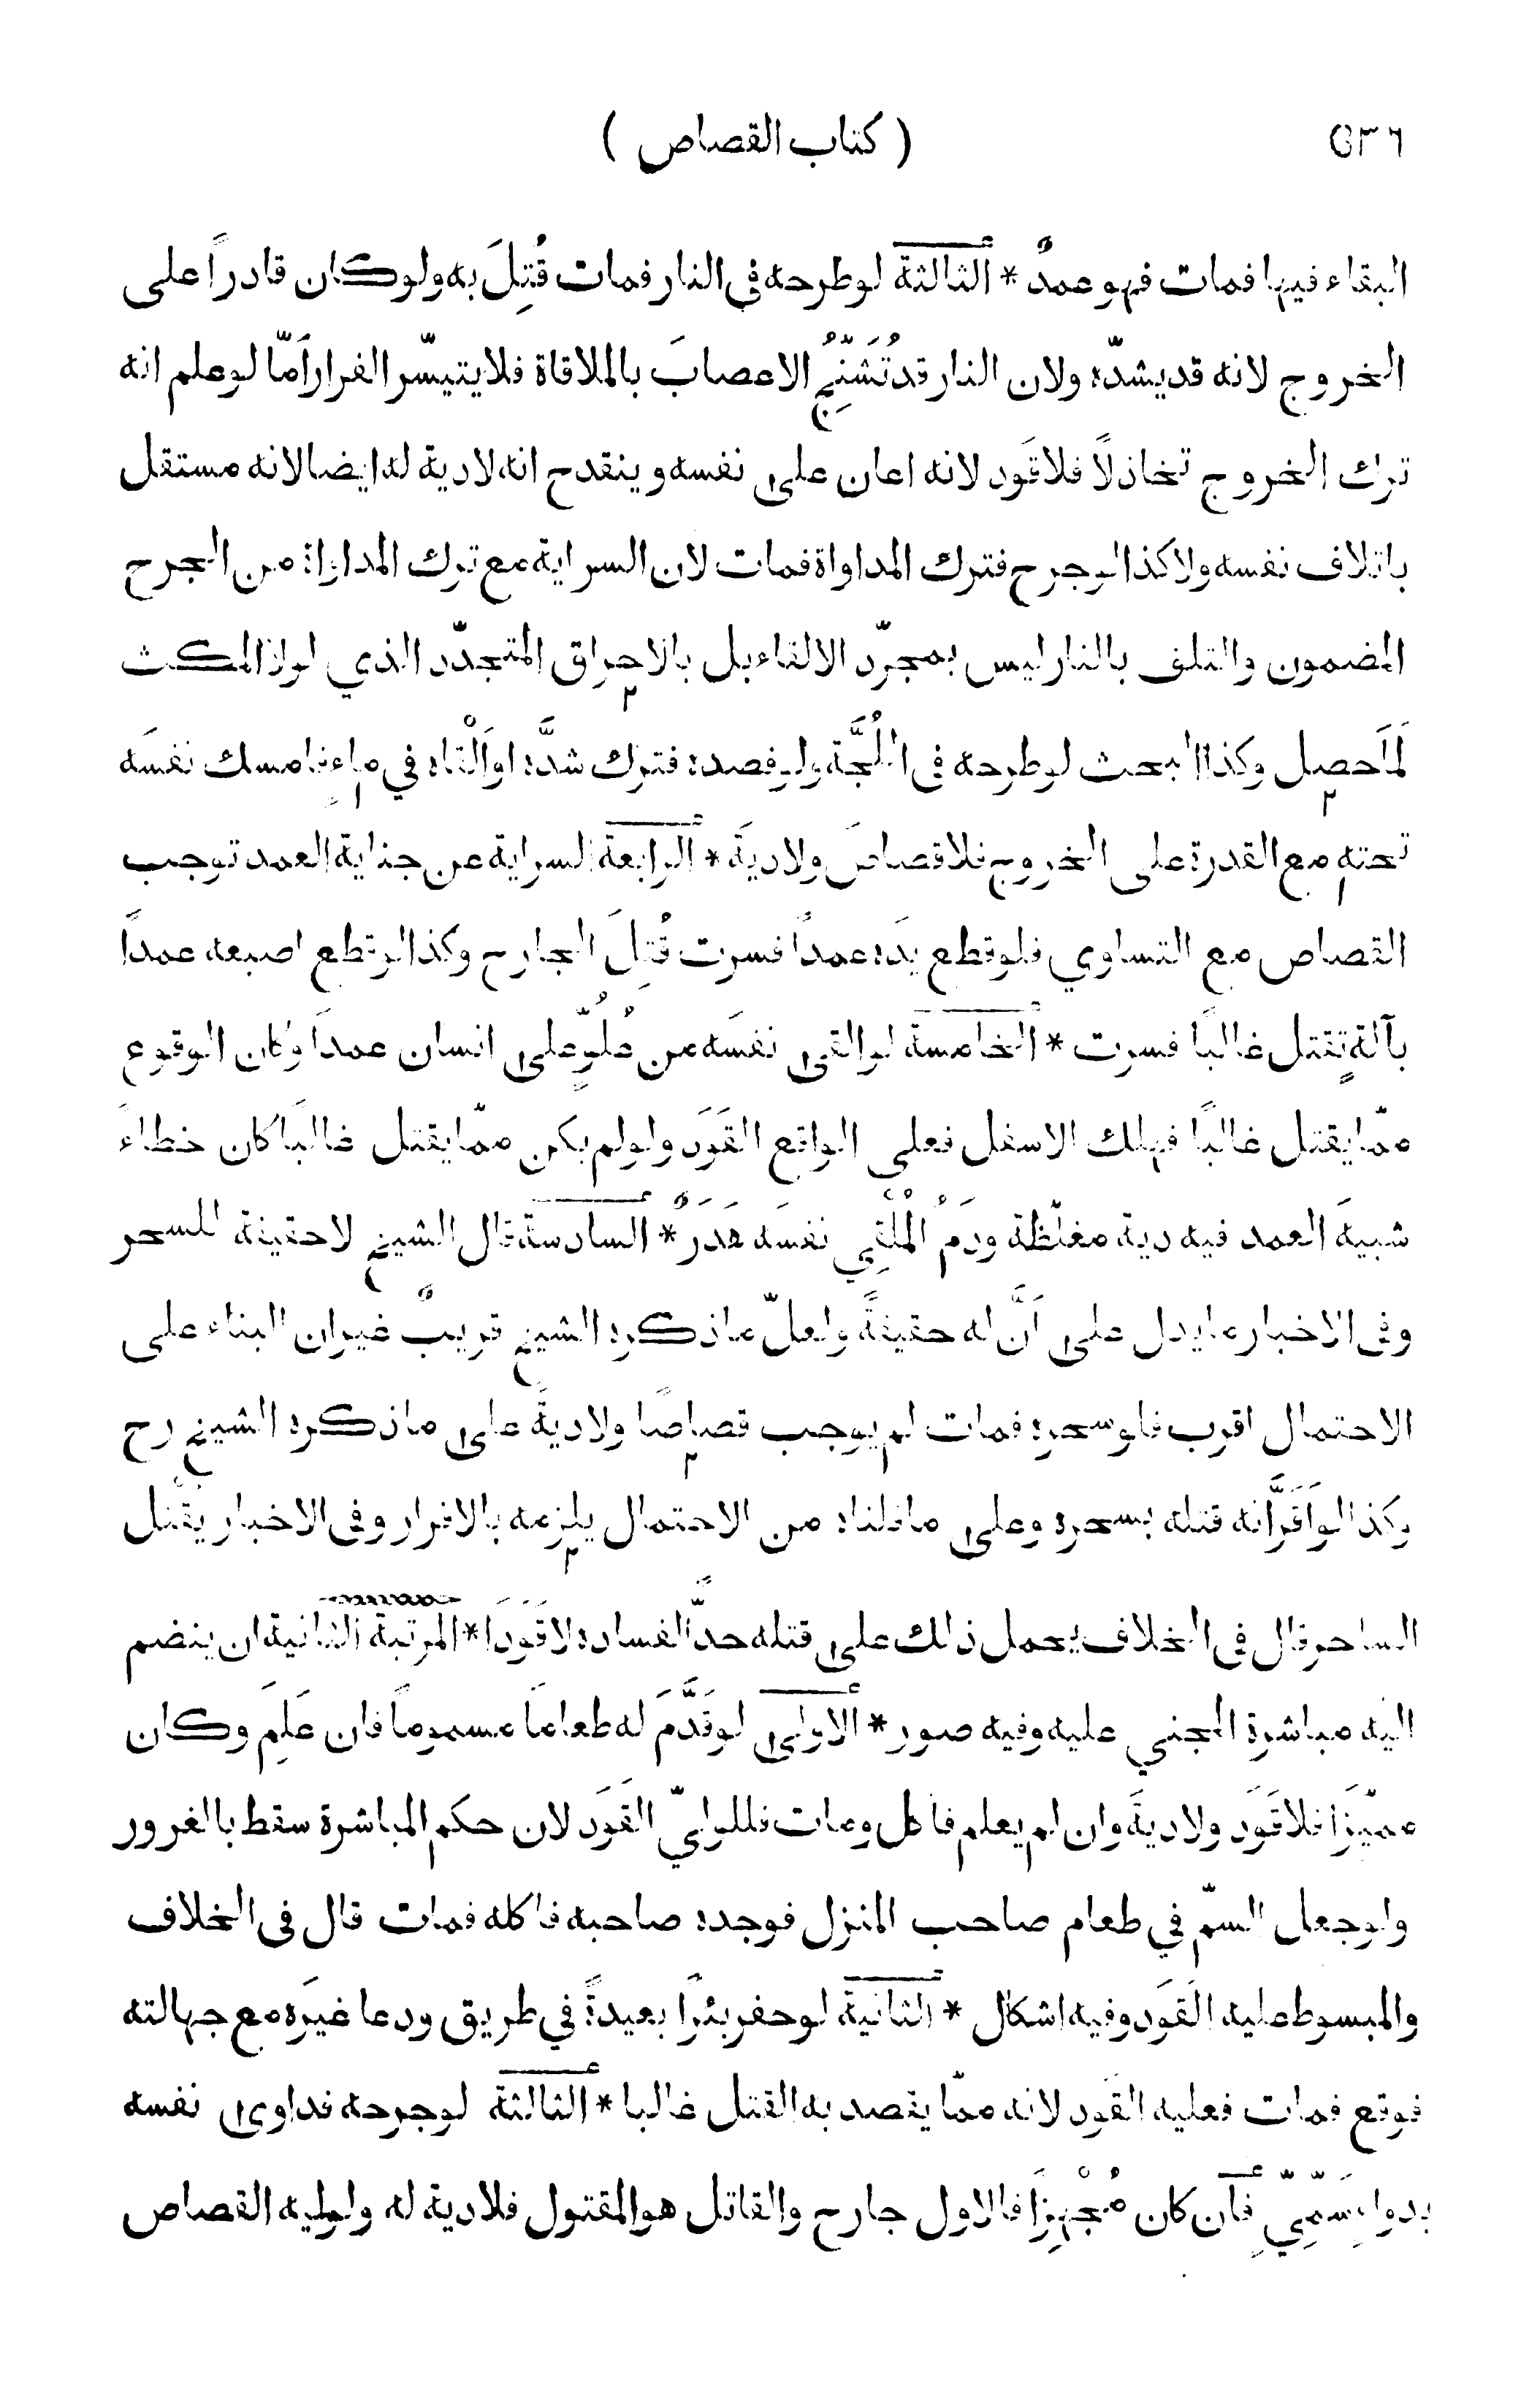 ٥٣٦ ( كتاب القصاص )
البقاء فيها فمات فهو عمدٌ * الثالثة لو طرحه في النار فمات قُتِلَ به ولو كان قادراً على
الخروج لانه قد يشدّه ولان النار قد تُشَنِّجُ الاعصابَ بالملاقاة فلا يتيسّر الفرار أمّا لو علم انه
ترك الخروج تخاذلاً فلا قَود لانه اعان على نفسه وينقدح انه لا دية له ايضا لانه مستقل
باتلاف نفسه ولا كذا لو جرح فترك المداواة فمات لان السراية مع ترك المداواة من الجرح
المضمون والتلف بالنار ليس بمجرّد الالقاء بل بالاحراق المتجدّد الذي لولا المكث
لَمَا حصل وكذا البحث لو طرحه في اللُجَّة ولو فصده فترك شدَّه او اَلْقاه في ماءٍ فامسك نفسَه
تحته مع القدرة على الخروج فلا قصاصَ ولا ديةَ * الرابعة السراية عن جناية العمد توجب
القصاص مع التساوي فلو قطع يدَه عمداً فسرت قُتِلَ الجارح وكذا لو قطع اصبعه عمداً
بآلةٍ تقتل غالباً فسرت * الخامسة لو القى نفسَه من عُلُوٍّ على انسان عمداً وكان الوقوع
ممّا يقتل غالباً فهلك الاسفل فعلى الواقع القَوَد ولو لم يكن ممّا يقتل غالباً كان خطاءً
شبيهَ العمد فيه دية مغلّظة ودَمُ المُلْقِي نفسَه هَدَرٌ * السادسة قال الشيخ لا حقيقة للسحر
وفي الاخبار ما يدل على اَنَّ له حقيقةً ولعلّ ما ذكره الشيخ قريبٌ غير ان البناء على
الاحتمال اقرب فلو سحره فمات لم يوجب قصاصًا ولا ديةً على ما ذكره الشيخ رح
وكذا لو اَقَرَّ انه قتله بسحره وعلى ما قلناه من الاحتمال يلزمه بالاقرار وفي الاخبار يُقْتل
الساحر قال في الخلاف يحمل ذلك على قتله حدًّا لفساده لا قَوَدًا * المرتبة الثانية ان ينضم
اليه مباشرة المجني عليه وفيه صور * الاولى لو قَدَّمَ له طعامًا مسموماً فان عَلِمَ وكان
مميّزًا فلا قَوَدَ ولا ديةَ وان لم يعلم فأكل ومات فللوليّ القَوَد لان حكم المباشرة سقط بالغرور
ولو جعل السمّ في طعام صاحب المنزل فوجده صاحبه فاكله فمات قال في الخلاف
والمبسوط عليه القَوَد وفيه اشكال * الثانية لو حفر بئرًا بعيدةً في طريق ودعا غيرَه مع جهالته
فوقع فمات فعليه القَود لانه ممّا يقصد به القتل غالبا * الثالثة لو جرحه فداوى نفسه
بدواءٍ سَمّيٍّ فان كان مُجْهِزًا فالاول جارح والقاتل هو المقتول فلا دية له ولوليه القصاص